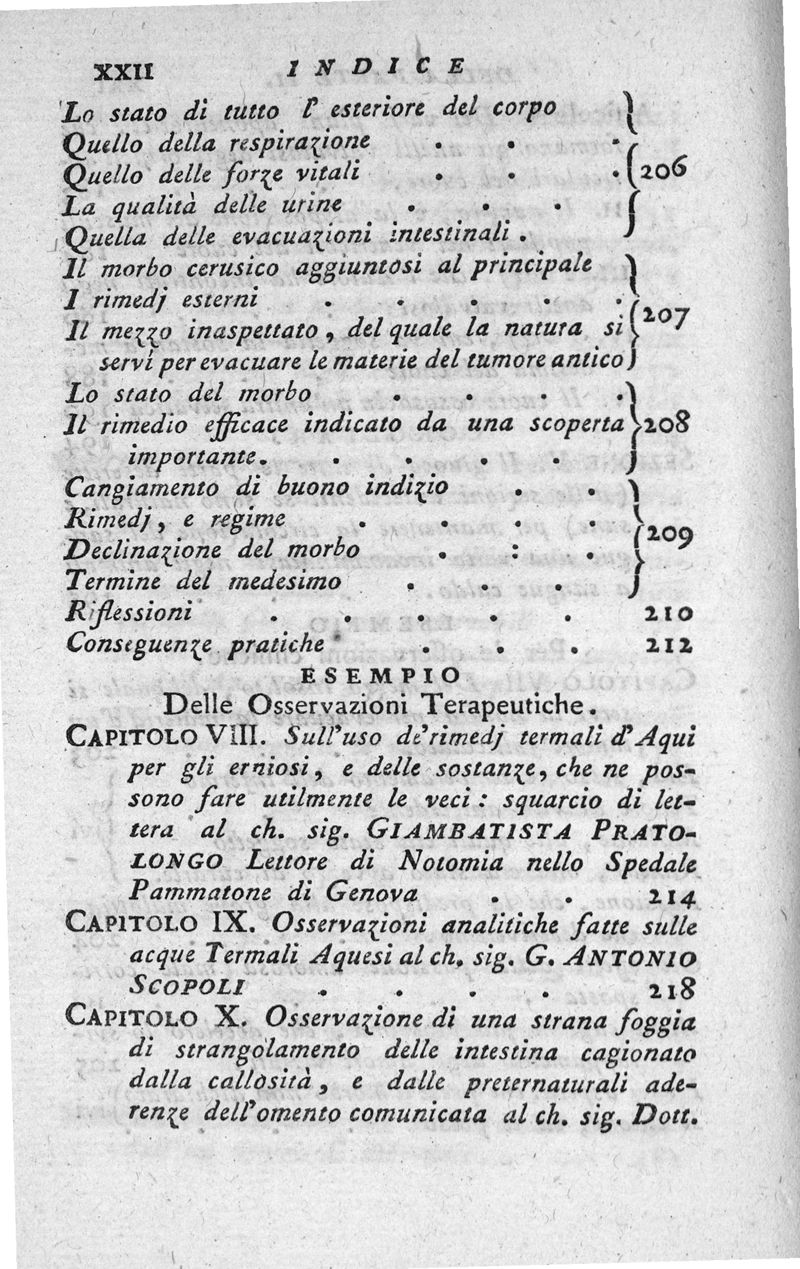 XXII INDICE
Lo stato di tutto l' esteriore del corpo
Quello della respirazione . . .
Quello delle forze vitali . . . 206
La qualità delle urine . . .
Quella delle evacuazioni intestinali .
Il morbo cerusico aggiuntosi al principale
I rimedj esterni . . . . .
Il mezzo inaspettato, del quale la natura si 207
servì per evacuare le materie del tumore antico
Lo stato del morbo . . . .
Il rimedio efficace indicato da una scoperta 208
importante. . . . .
Cangiamento di buono indizio . .
Rimedj, e regime . . . .
Declinazione del morbo . : . 209
Termine del medesimo . . .
Riflessioni . . . . . 210
Conseguenze pratiche . . . 212
ESEMPIO
Delle Osservazioni Terapeutiche.
CAPITOLO VIII. Sull'uso de'rimedj termali d'Aqui
per gli erniosi, e delle sostanze, che ne pos-
sono fare utilmente le veci: squarcio di let-
tera al ch. sig. GIAMBATISTA PRATO-
LONGO Lettore di Notomia nello Spedale
Pammatone di Genova . . 214
CAPITOLO IX. Osservazioni analitiche fatte sulle
acque Termali Aquesi al ch. sig. G. ANTONIO
SCOPOLI . . . . 218
CAPITOLO X. Osservazione di una strana foggia
di strangolamento delle intestina cagionato
dalla callosità, e dalle preternaturali ade-
renze dell'omento comunicata al ch. sig. Dott.